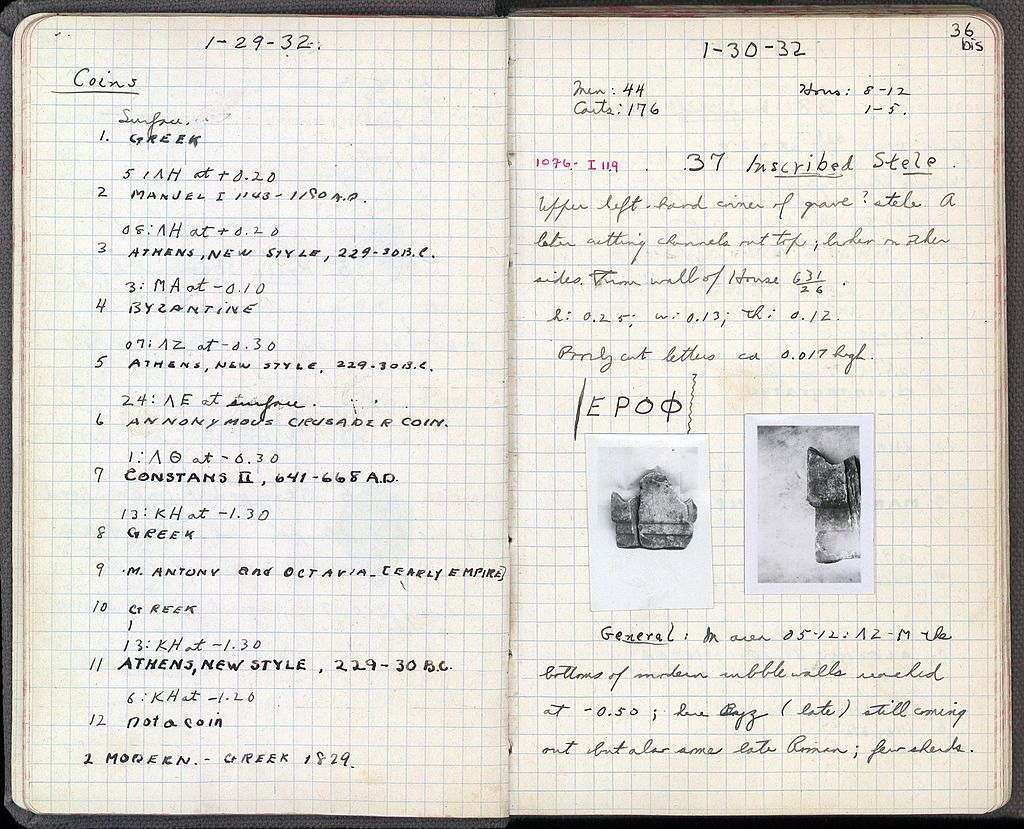 1-29-32.
Coins
Surface.
1. GREEK
51ΛH at +0.20
2 MANUEL I 1143-1180 A.D.
08:ΛH at +0.20
3 ATHENS, NEW STYLE, 229-30 B.C.
3: MA at -0.10
4 BYZANTINE
07: ΛZ at -0.30
5 ATHENS, NEW STYLE, 229-30 B.C.
24: ΛE at surface.
6 ANNONYMOUS CRUSADER COIN.
1: ΛΘ at -0.30
7 CONSTANS II, 641-668 A.D.
13: KH at -1.30
8 GREEK
9 M. ANTONY and OCTAVIA - [EARLY EMPIRE]
10 GREEK
13: KH at -1.30
11 ATHENS, NEW STYLE, 229-30 B.C.
6: KH at -1.20
12 not a coin
2 MODERN. - GREEK 1829.
36
bis
1-30-32
Men: 44 Hours: 8-12
Carts: 176 1-5.
1076- I 119 . 37 Inscribed Stele.
Upper left-hand corner of grave? stele. A
later cutting channels out top; broken on other
sides. From wall of House 631/26.
h: 0.25; w: 0.13; th: 0.12.
Poorly cut letters ca 0.017 high.
ΕΡΟΦ
General: In area 05-12: ΛZ-M the
bottoms of modern rubble walls reached
at -0.50; here Byz (late) still coming
out but also some late Roman; few sherds.